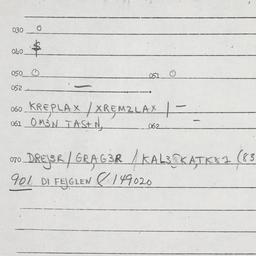 030 0
040 $
050 0 051 0
052 —
060 KREPLAX / XREMZLAX / —
061 OM3N TAStN, 062 —
070 DREJ3R / GRAG3R / (83
901 DI FEJGLEN 149020